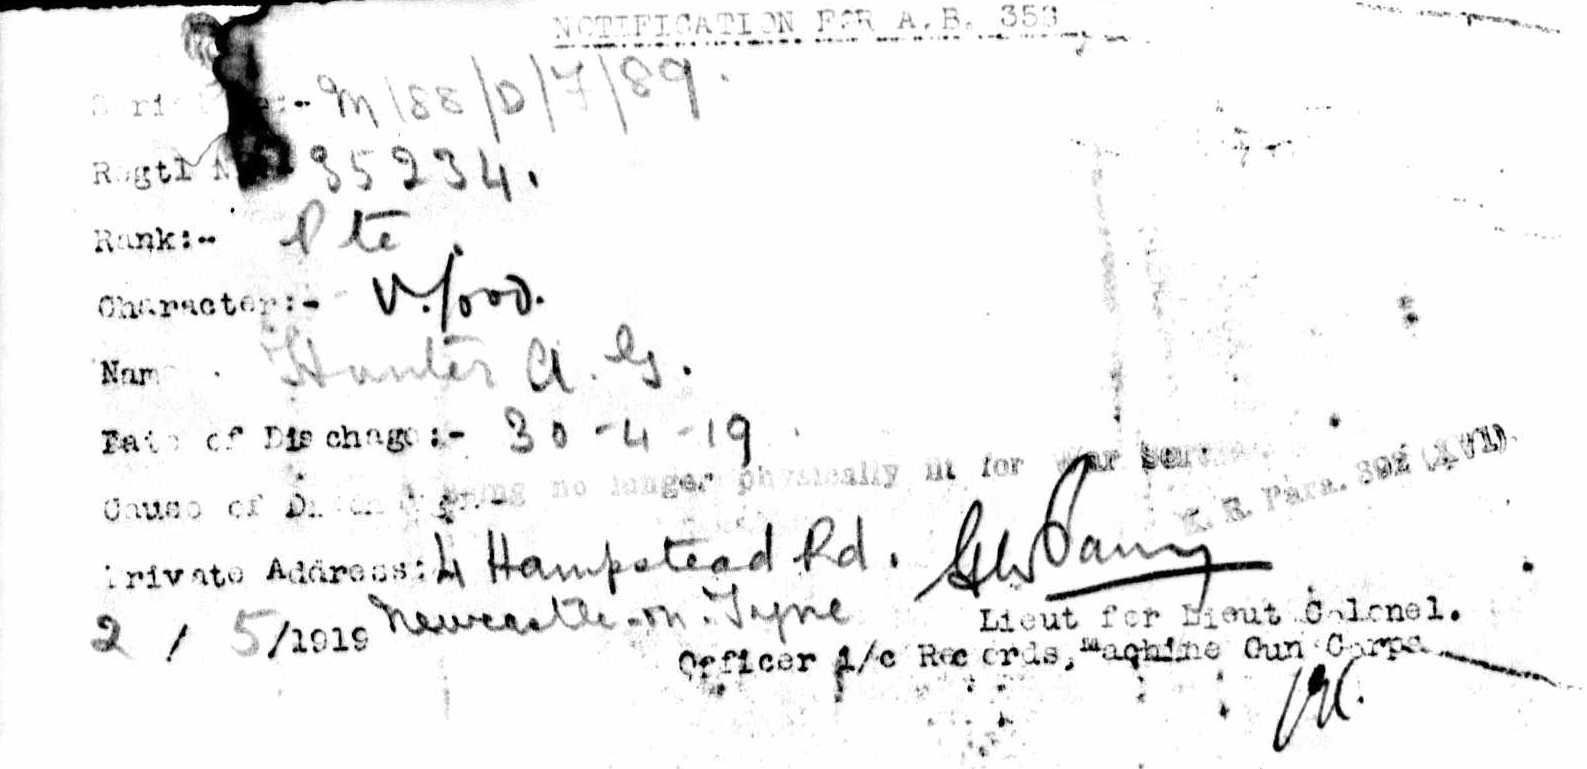 NOTIFICATION FOR A.B. 353
M/88/D/7/89.
Regtl 85234.
Rank:- Pte
Character:- V. Good.
Name Hunter A. G.
Date of Dischage:- 30-4-19
Cause of being no longer physically fit for War
K. R. Para. 392 (XVI).
Private Address: 4 Hampstead Rd.
2/5/1919 Newcastle-on-Tyne
Lieut for Lieut Colonel.
Officer i/c Records, Machine Gun Corps